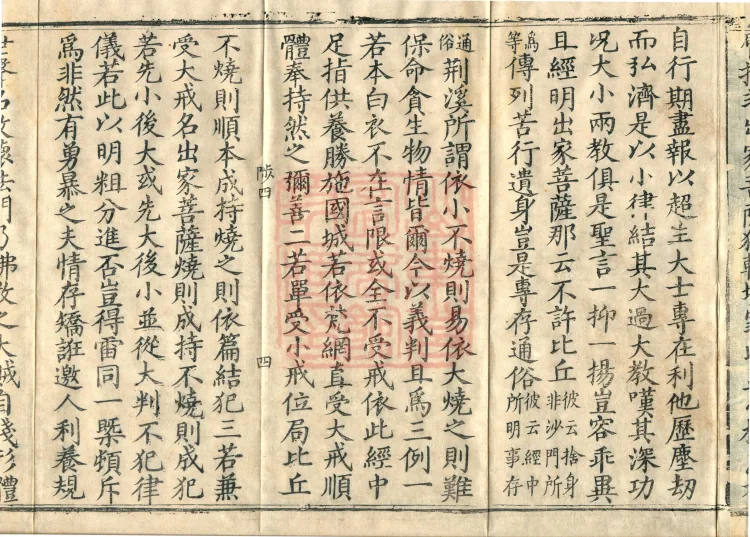 自行期盡報以超生大士專在利他歷塵劫
而弘濟是以小律結其大過大教嘆其深功
况大小兩教俱是聖言一抑一揚豈容乖異
且經明出家菩薩那云不許比丘彼云捨身非沙門所
為等傳列苦行遺身豈是專存通俗彼云經中所明事存
通俗荊溪所謂依小不燒則易依大燒之則難
保命貪生物情皆爾今以義判且爲三例一
若本白衣不在言限或全不受戒依此經中
足指供養勝施國城若依梵網直受大戒順
體奉持然之彌善二若單受小戒位局比丘
陟四 四
不燒則順本成持燒之則依篇結犯三若兼
受大戒名出家菩薩燒則成持不燒則成犯
若先小後大或先大後小並從大判不犯律
儀若此以明粗分進否豈得雷同一槩頓斥
爲非然有勇暴之夫情存矯誑邀人利養規
名故壞法門乃佛教之大賊自殘形體